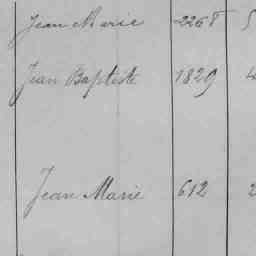 Jean Marie 2268 5
Jean Baptiste 1829 4
Jean Marie 612 2